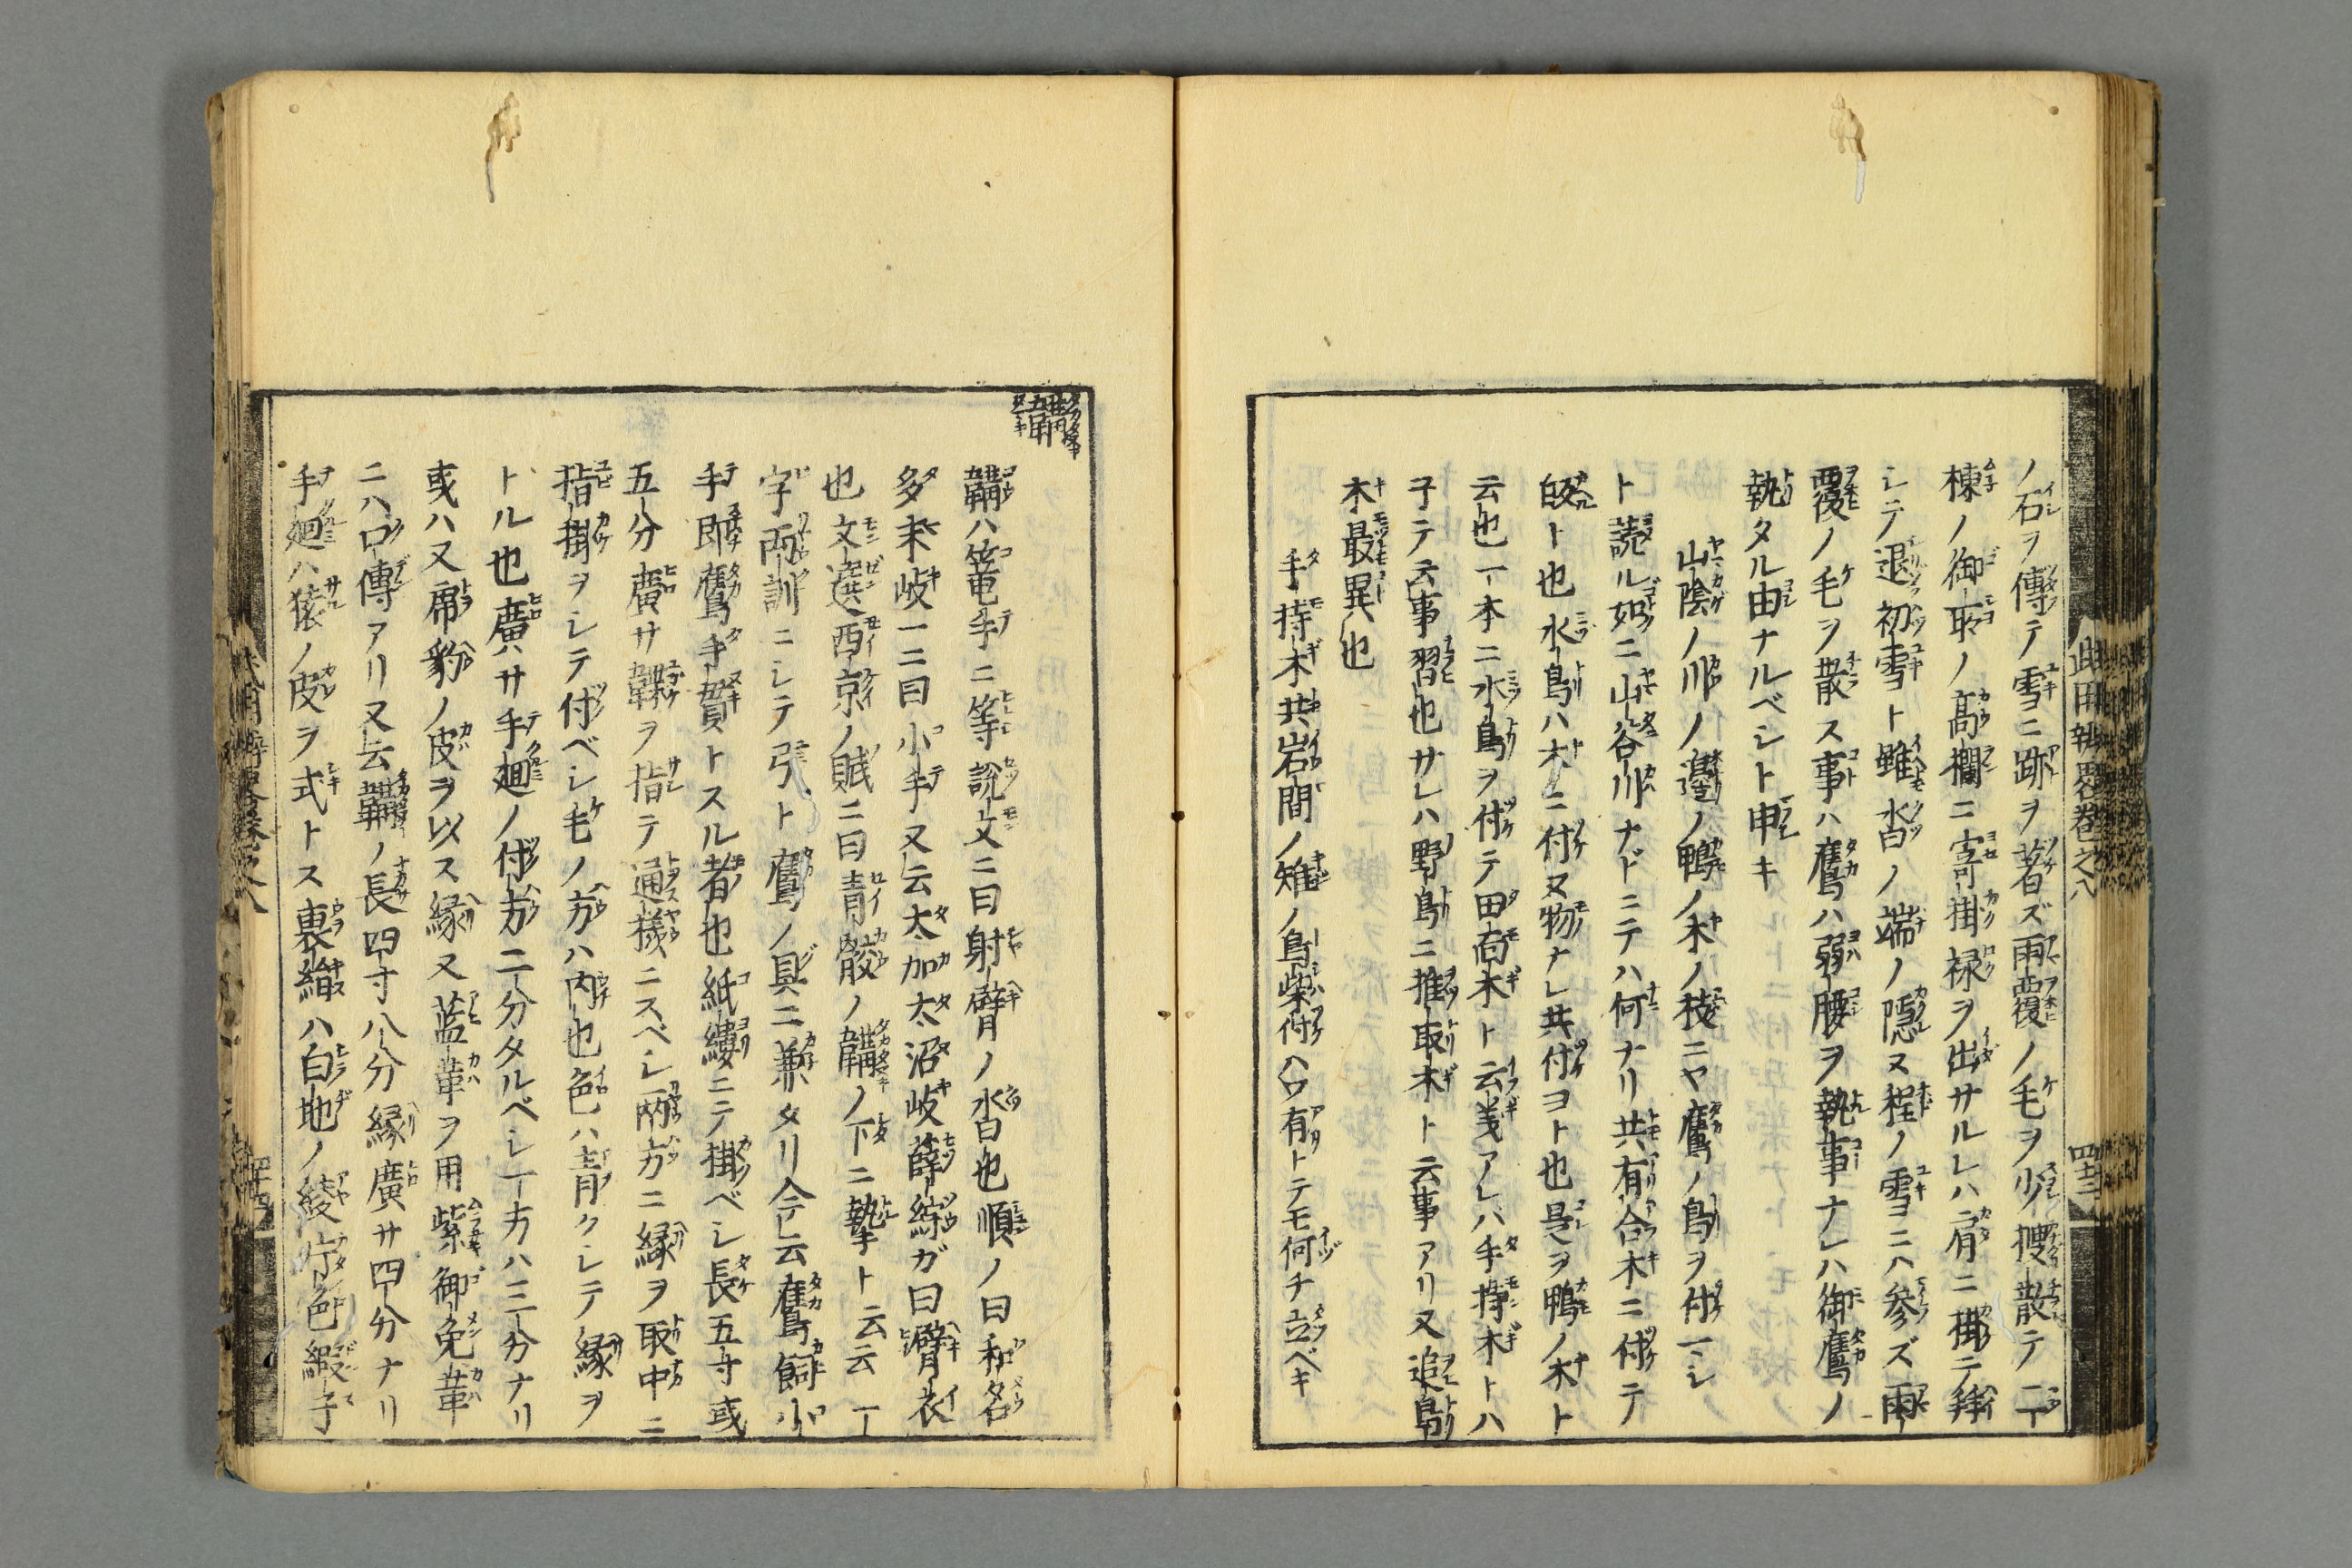 ノ石ヲ傳テ雪ニ跡ヲ著ズ雨覆ノ毛ヲ少シ捜散テ二丁
棟ノ御所ノ高欄ニ寄掛禄ヲ出サルレハ肩ニ掛テ拜
シテ退初雪ト雖沓ノ端ノ隱ヌ程ノ雪ニハ参ズ雨
覆ノ毛ヲ散ス事ハ鷹ハ弱腰ヲ執事ナレハ御鷹ノ
執タル由ナルベシト申キ
山陰ノ川ノ邊ノ鴨ノ木ノ枝ニヤ鷹ノ鳥ヲ付マシ
ト讀ル如ニ山谷川ナドニテハ何ナリ共有合木ニ付テ
ト也水鳥ハ木ニ付又物ナレ共付ヨト也是ヲ鴨ノ木ト
云也一本ニ水鳥ヲ付テ田面木ト云義アレハ手持木トハ
子テ云事習也サレハ野鳥ニ推取木ト云事アリ又追鳥
木最異也
手持木共岩間ノ雉ノ鳥柴付ヘウ有トテモ何チ立ベキ
此田執畧卷之八
四十三
韝
韝ハ篭手ニ等説文ニ曰射臂ノ沓也順ノ曰和名
多末岐一ニ曰小手又云太加太沼岐薛綜ガ曰臂衣
也文選西京ノ賦ニ曰青骹ノ韝ノ下ニ摯ト云云丁
字両訓ニシテ引ト鷹ノ具ニ兼タリ今云鷹飼小
手即鷹手貫トスル者也紙縷ニテ掛ベシ長五寸或
五分廣サ韘ヲ指テ通様ニスベシ兩方ニ縁ヲ取中ニ
指掛ヲシテ付ベシ毛ノ方ハ内也色ハ青クシテ縁ヲ
トル也廣ハサ手廻ノ付方二分タルベシ一方ハ三分ナリ
或ハ又席豹ノ皮ヲ以ス縁又藍革ヲ用紫御免革
ニハ口傳アリ又云韝ノ長四寸八分縁廣サ四分ナリ
手廻ハ猿ノ皮ヲ式トス裏織ハ白地ノ綾片色緞子